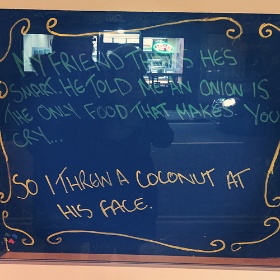 MY FRIEND THINKS HE'S
SMART. HE TOLD ME AN ONION IS
THE ONLY FOOD THAT MAKES YOU
CRY...
SO I THREW A COCONUT AT
HIS FACE.